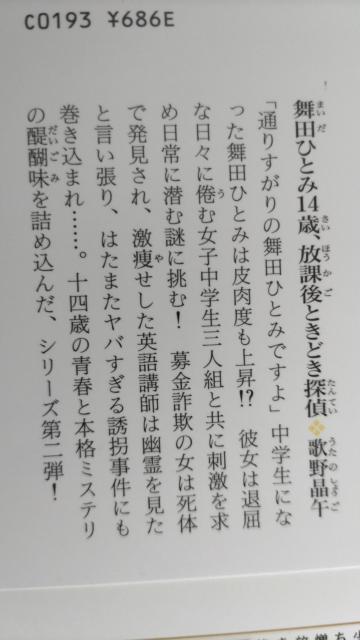 C0193 ¥686E
舞田ひとみ14歳、放課後ときどき探偵❖歌野晶午
「通りすがりの舞田ひとみですよ」中学生にな
った舞田ひとみは皮肉度も上昇!? 彼女は退屈
な日々に倦む女子中学生三人組と共に刺激を求
め日常に潜む謎に挑む! 募金詐欺の女は死体
で発見され、激痩せした英語講師は幽霊を見た
と言い張り、はたまたヤバすぎる誘拐事件にも
巻き込まれ……。十四歳の青春と本格ミステリ
の醍醐味を詰め込んだ、シリーズ第二弾!